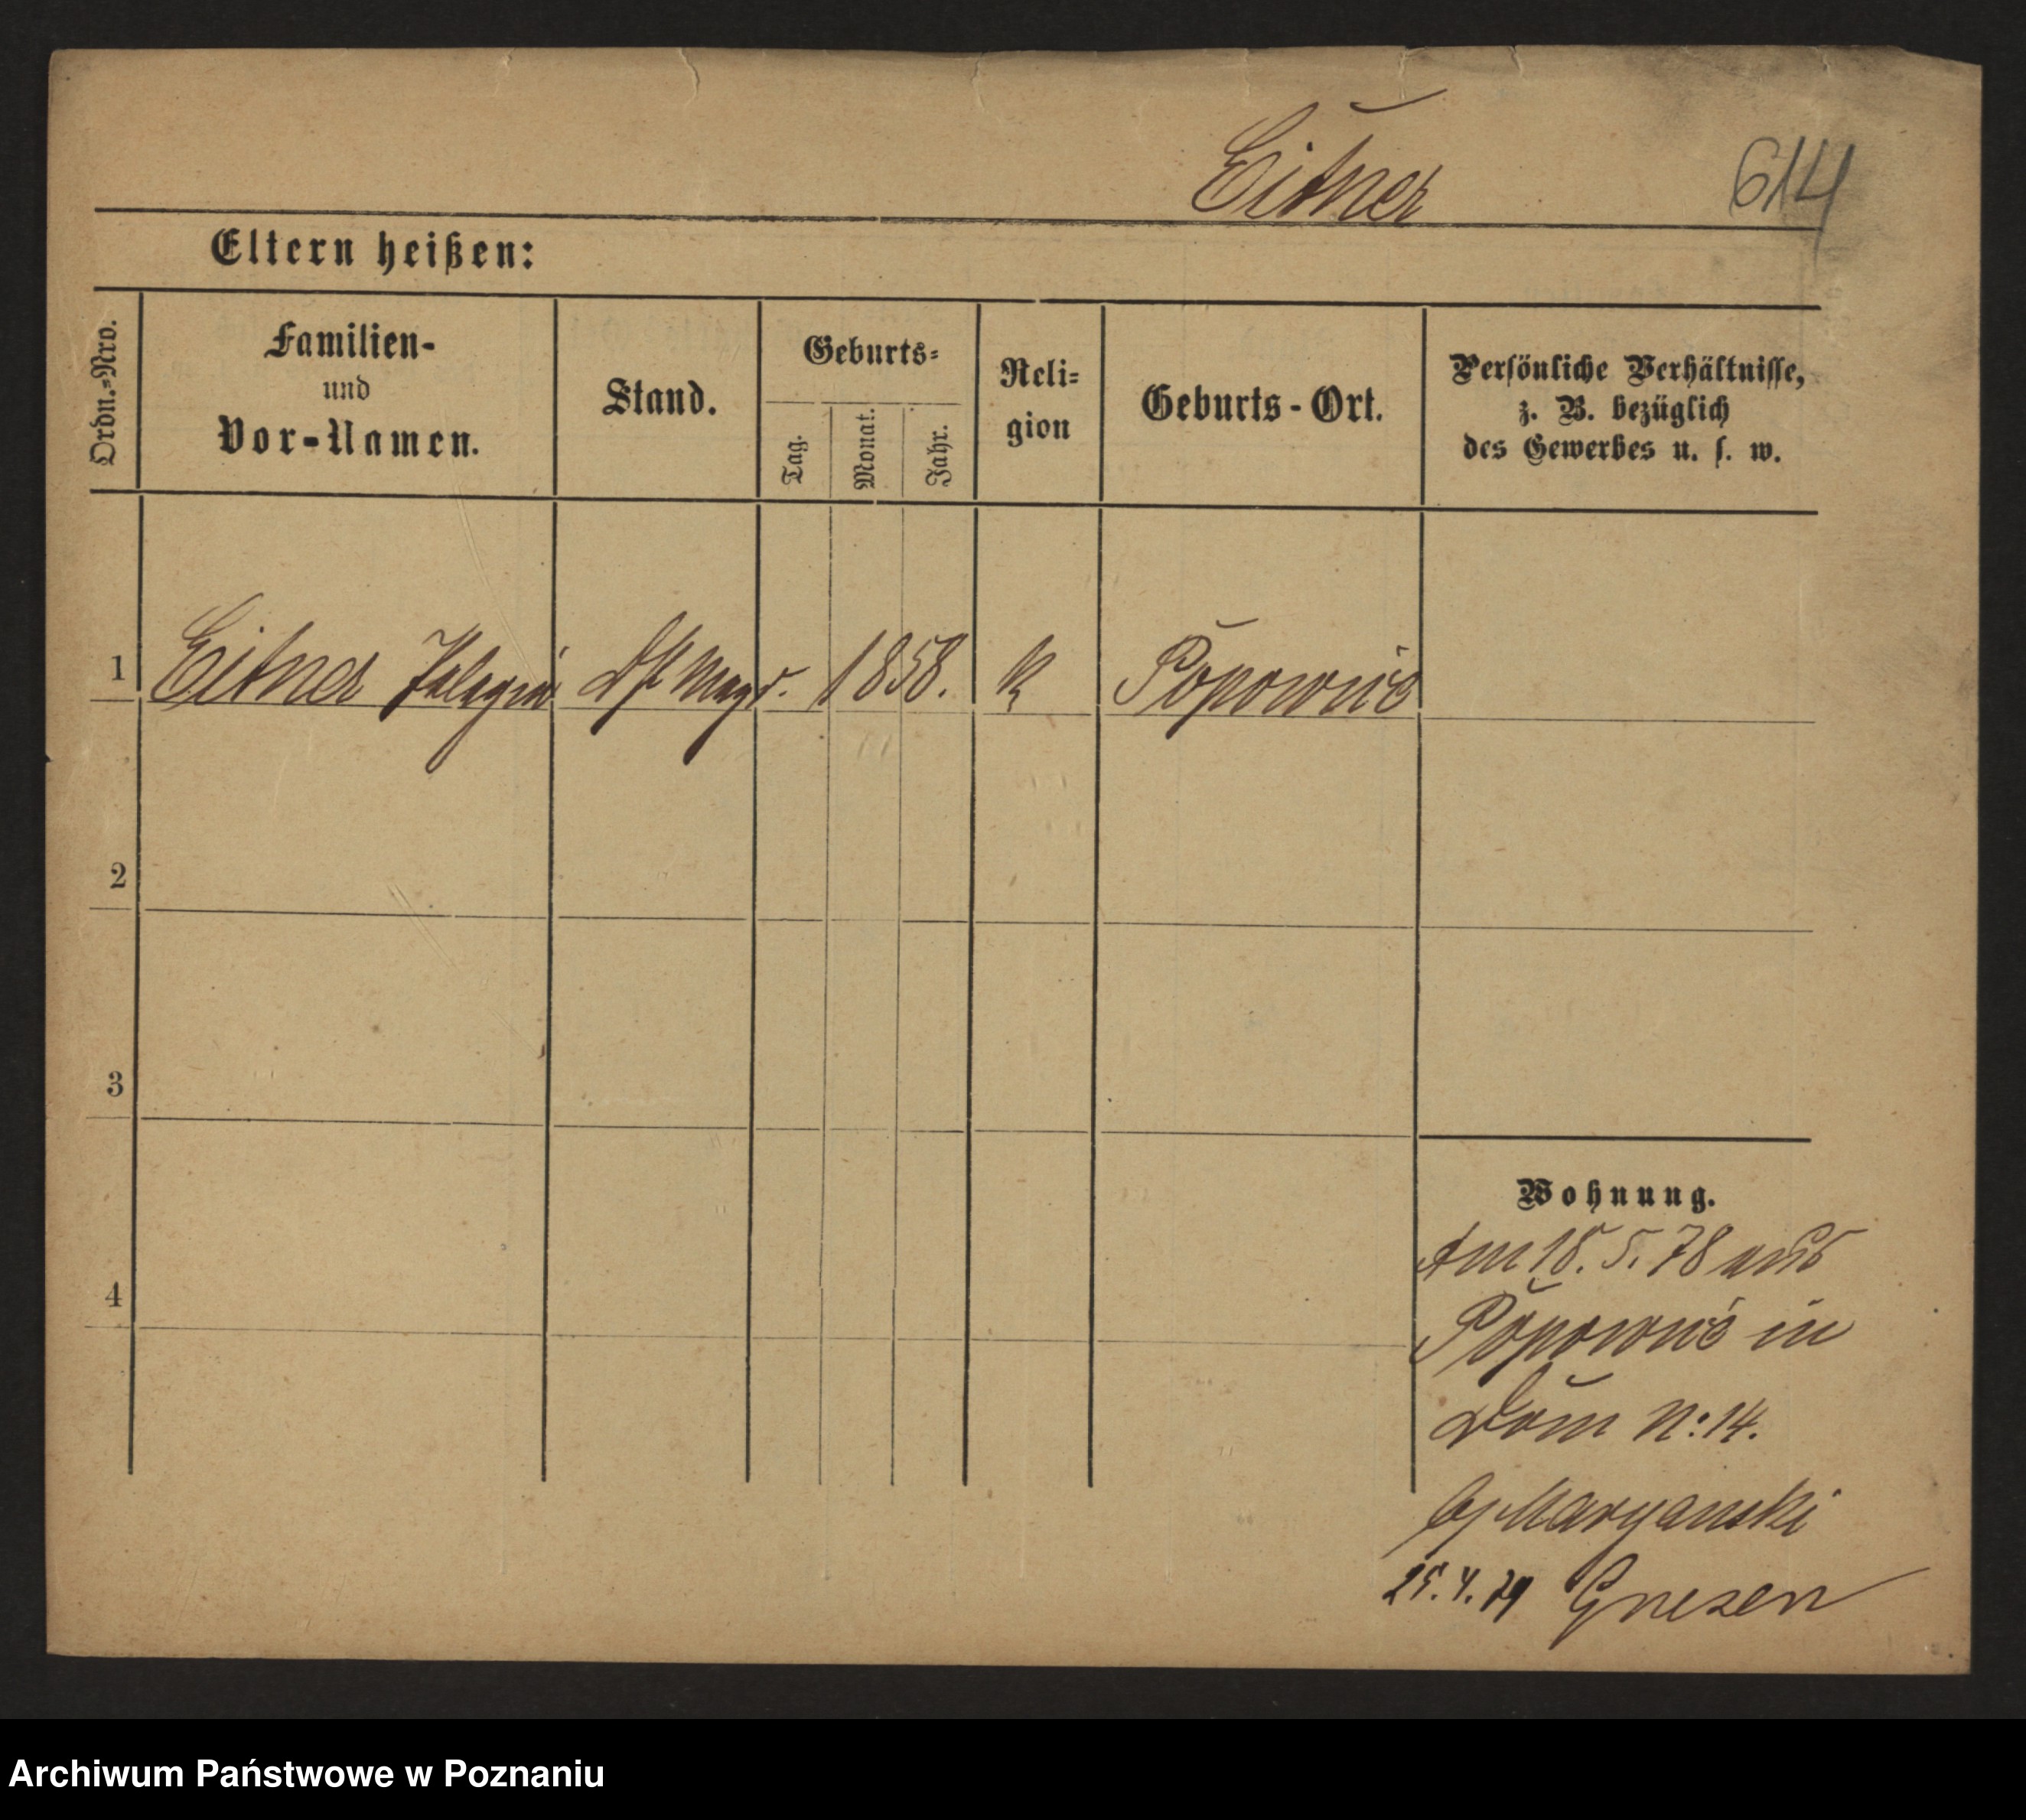 Eitner
614
Eltern heißen:
Ordn.=Nro.
Familien-
und
Vor-Namen.
Stand.
Geburts=
Tag.
Monat.
Jahr.
Reli=
gion
Geburts-Ort.
Persönliche Verhältnisse,
z. B. bezüglich
des Gewerbes u. s. w.
1 Eitner 1858. K
2
3
4
Wohnung.
Am 18. 5. 78 aus
in
Dom N: 14.
Maryanski
25. 4. 79 Gnesen
Archiwum Państwowe w Poznaniu